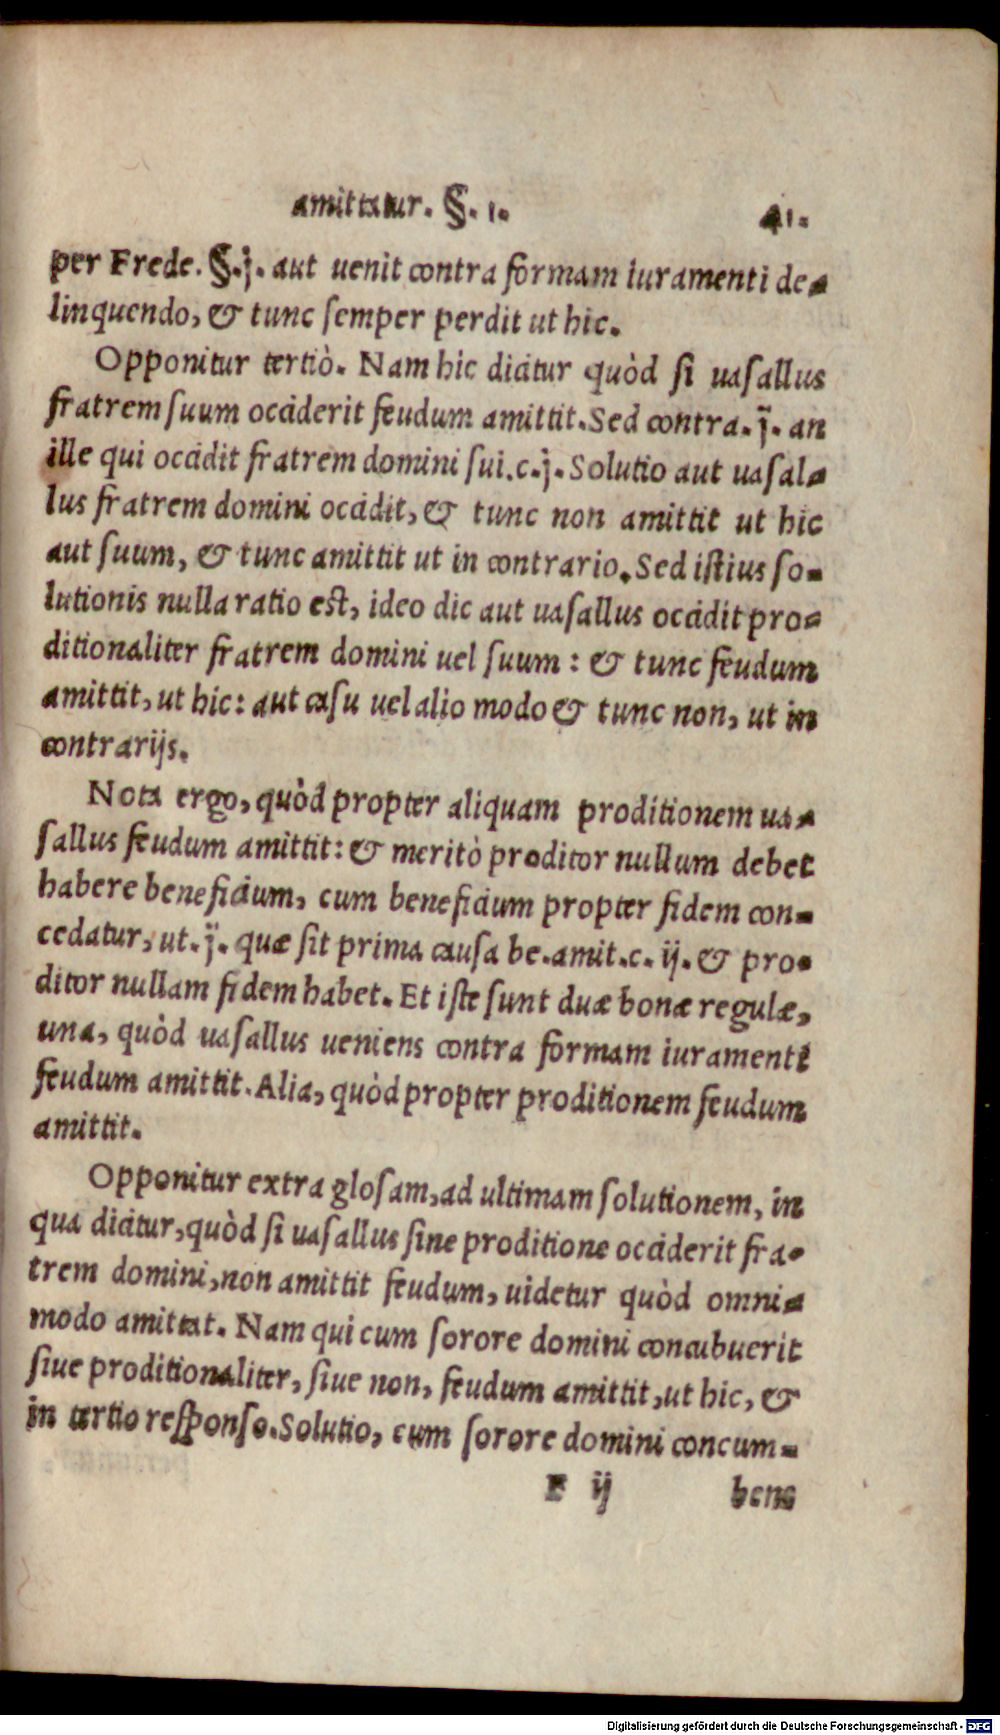 amittatur. §. 1. 41.
per Frede. §.j. aut uenit contra formam iuramenti de-
linquendo, & tunc semper perdit ut hic.
Opponitur tertiò. Nam hic dicitur quòd si uasallus
fratrem suum occiderit feudum amittit. Sed contra. j. an
ille qui occidit fratrem domini sui. c. j. Solutio aut uasal-
lus fratrem domini occidit, & tunc non amittit ut hic
aut suum, & tunc amittit ut in contrario. Sed istius so-
lutionis nulla ratio est, ideo dic aut uasallus occidit pro-
ditionaliter fratrem domini uel suum: & tunc feudum
amittit, ut hic: aut casu uel alio modo & tunc non, ut in
contrarijs.
Nota ergo, quòd propter aliquam proditionem ua-
sallus feudum amittit: & meritò proditor nullum debet
habere beneficium, cum beneficium propter fidem con-
cedatur, ut. j. quæ sit prima causa be. amit. c. ij. & pro-
ditor nullam fidem habet. Et iste sunt duæ bonæ regulæ,
una, quòd uasallus ueniens contra formam iuramenti
feudum amittit. Alia, quòd propter proditionem feudum
amittit.
Opponitur extra glosam, ad ultimam solutionem, in
qua dicitur, quòd si uasallus sine proditione occiderit fra-
trem domini, non amittit feudum, uidetur quòd omni-
modo amittat. Nam qui cum sorore domini concubuerit
siue proditionaliter, siue non, feudum amittit, ut hic, &
in tertio responso. Solutio, cum sorore domini concum-
F ij bens
Digitalisierung gefördert durch die Deutsche Forschungsgemeinschaft - DFG